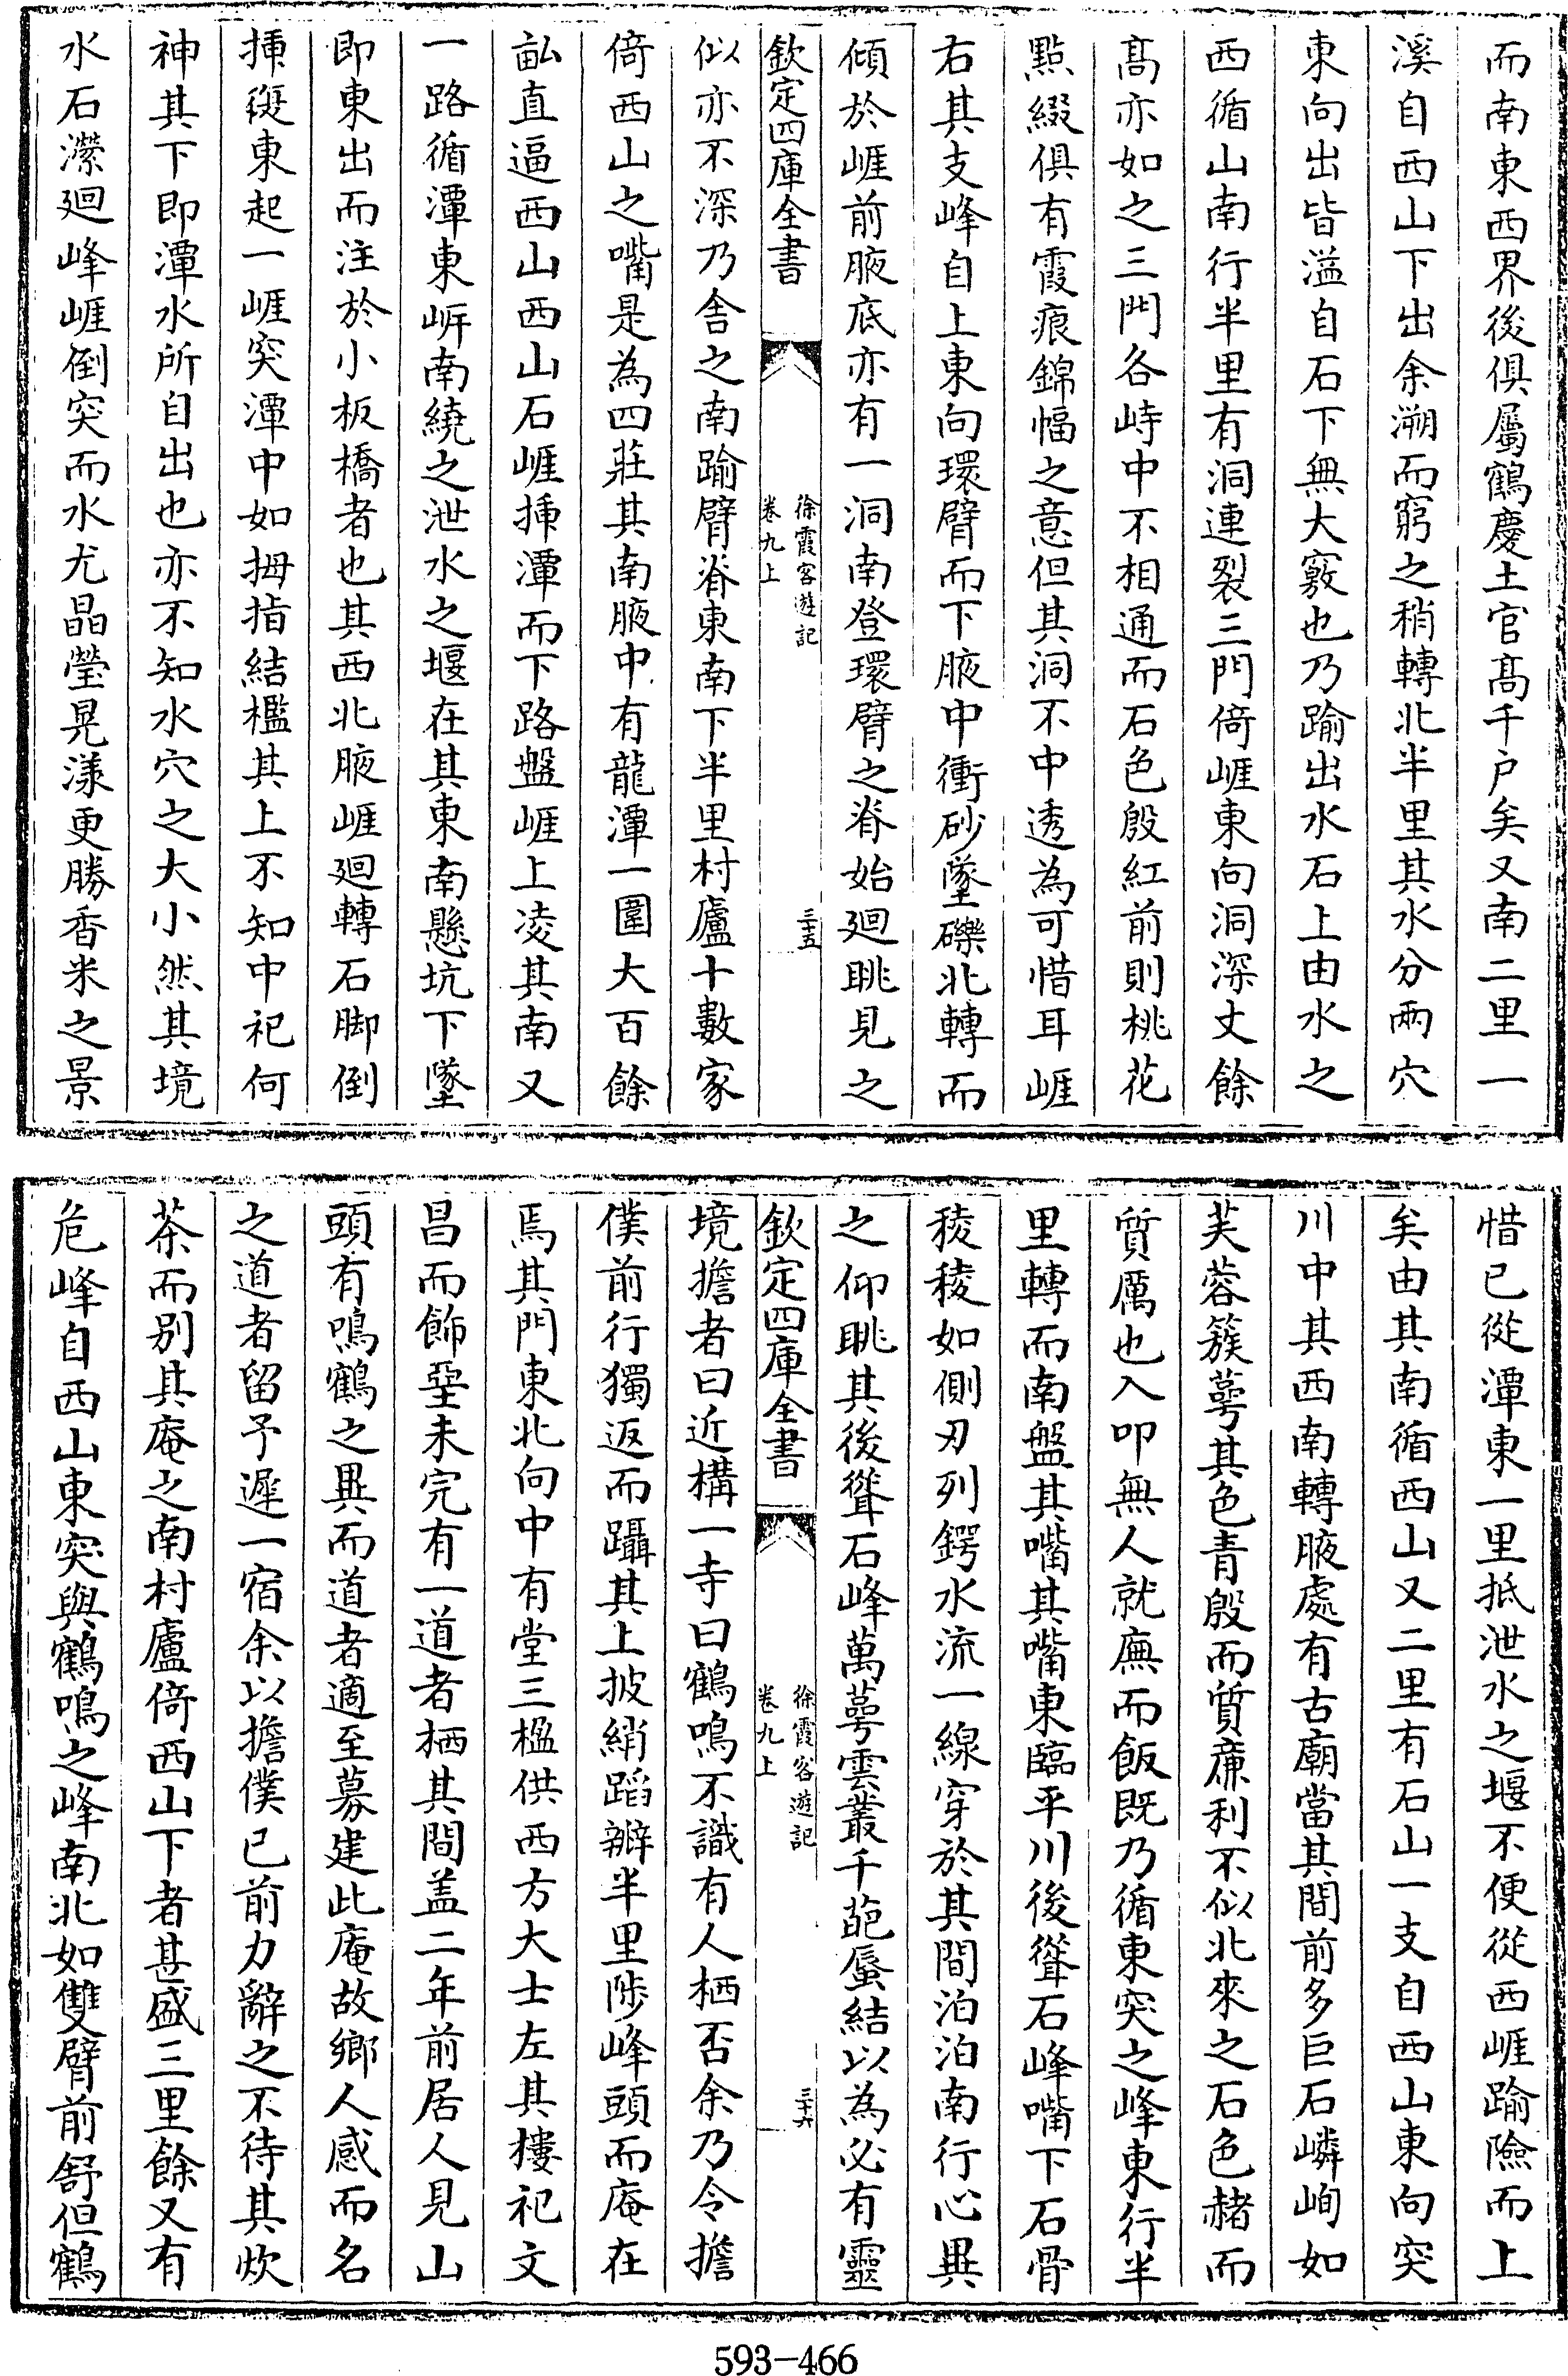 而南東西界後俱屬鶴慶土官髙千户矣又南二里一
溪自西山下出余溯而窮之稍轉北半里其水分兩穴
東向出皆溢自石下無大竅也乃踰出水石上由水之
西循山南行半里有洞連裂三門倚崕東向洞深丈餘
髙亦如之三門各峙中不相通而石色殷紅前則桃花
點綴俱有霞痕錦幅之意但其洞不中透為可惜耳崕
右其支峰自上東向環臂而下腋中衝砂墜礫北轉而
傾於崕前腋底亦有一洞南登環臂之脊始廻眺見之
欽定四庫全書
徐霞客遊記
卷九上
三十五
似亦不深乃舍之南踰臂脊東南下半里村廬十數家
倚西山之嘴是為四莊其南腋中有龍潭一圍大百餘
畆直逼西山西山石崕揷潭而下路盤崕上凌其南又
一路循潭東岍南繞之泄水之堰在其東南懸坑下墜
即東出而注於小板橋者也其西北腋崕廻轉石脚倒
揷復東起一崕突潭中如拇指結檻其上不知中祀何
神其下即潭水所自出也亦不知水穴之大小然其境
水石瀠廻峰崕倒突而水尤晶瑩晃漾更勝香米之景
惜已從潭東一里抵泄水之堰不便從西崕踰險而上
矣由其南循西山又二里有石山一支自西山東向突
川中其西南轉腋處有古廟當其間前多巨石嶙峋如
芙蓉簇萼其色青殷而質廉利不似北來之石色赭而
質厲也入叩無人就廡而飯既乃循東突之峰東行半
里轉而南盤其嘴其嘴東臨平川後聳石峰嘴下石骨
稜稜如側刃列鍔水流一線穿於其間泊泊南行心異
之仰眺其後聳石峰萬萼雲叢千葩蜃結以為必有靈
欽定四庫全書
徐霞客遊記
卷九上
三十六
境擔者曰近構一寺曰鶴鳴不識有人栖否余乃令擔
僕前行獨返而躡其上披綃蹈瓣半里陟峰頭而庵在
焉其門東北向中有堂三楹供西方大士左其樓祀文
昌而飾堊未完有一道者栖其間盖二年前居人見山
頭有鳴鶴之異而道者適至募建此庵故鄉人感而名
之道者留予遲一宿余以擔僕已前力辭之不待其炊
茶而别其庵之南村廬倚西山下者甚盛三里餘又有
危峰自西山東突與鶴鳴之峰南北如雙臂前舒但鶴
593-466